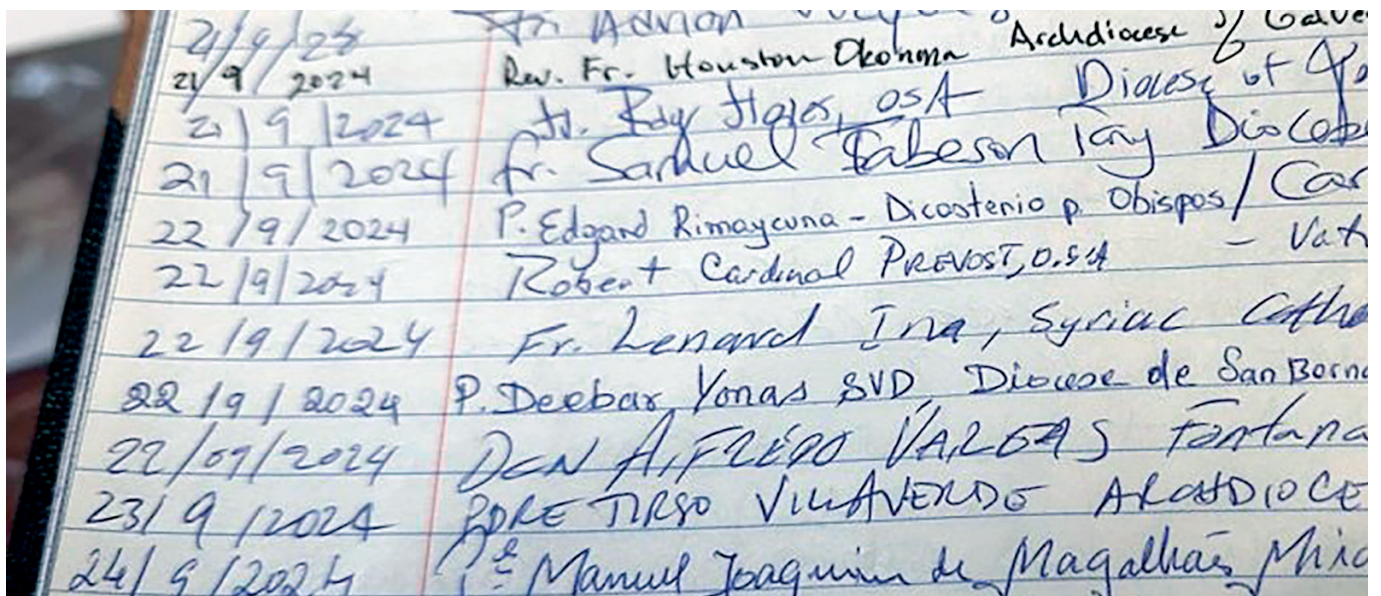 21/9/24 Fr. Adrian
21/9/2024 Rev. Fr. Houston Okonma Archdiocese of Galve
21/9/2024 Fr. Ray OSA Diocese of
21/9/2024 fr. Samuel Tabeson
22/9/2024 P. Edgard Rimaycuna - Dicasterio p. Obispos / Car
22/9/2024 Robert Cardinal PREVOST, O.S.A - Vat
22/9/2024 Fr. Lenard Ina, Syriac Catho
22/9/2024 P. Deebar Yonas SVD, Diocese de San Berna
22/09/2024 DCN ALFREDO VARGAS Fontana
23/9/2024 PDRE TIRSO VILLAVERDE ARCHDIOCE
24/9/2024 Pe Manuel Joaquim de Magalhães